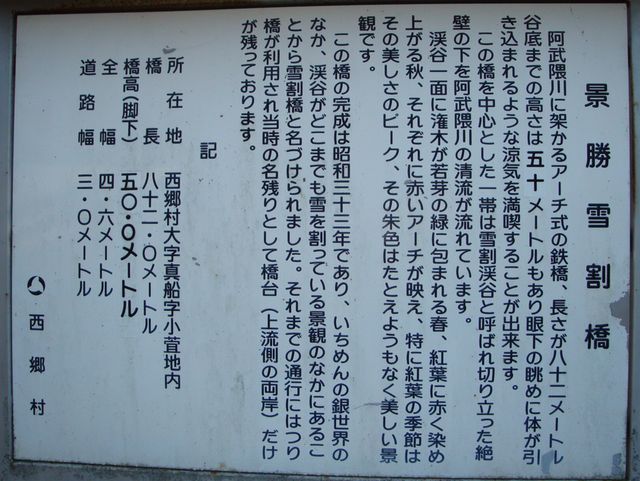 景勝雪割橋
阿武隈川に架かるアーチ式の鉄橋、長さが八十二メートル
谷底までの高さは五十メートルもあり眼下の眺めに体が引
き込まれるような涼気を満喫することが出来ます。
この橋を中心とした一帯は雪割渓谷と呼ばれ切り立った絶
壁の下を阿武隈川の清流が流れています。
渓谷一面に潅木が若芽の緑に包まれる春、紅葉に赤く染め
上がる秋、それぞれに赤いアーチが映え、特に紅葉の季節は
その美しさのピーク、その朱色はたとえようもなく美しい景
観です。
この橋の完成は昭和三十三年であり、いちめんの銀世界の
なか、渓谷がどこまでも雪を割っている景観のなかにあるこ
とから雪割橋と名づけられました。それまでの通行にはつり
橋が利用され当時の名残りとして橋台（上流側の両岸）だけ
が残っております。
記
所在地 西郷村大字真船字小萱地内
橋長 八十二・〇メートル
橋高（脚下） 五〇・〇メートル
全幅 四・六メートル
道路幅 三・〇メートル
西郷村